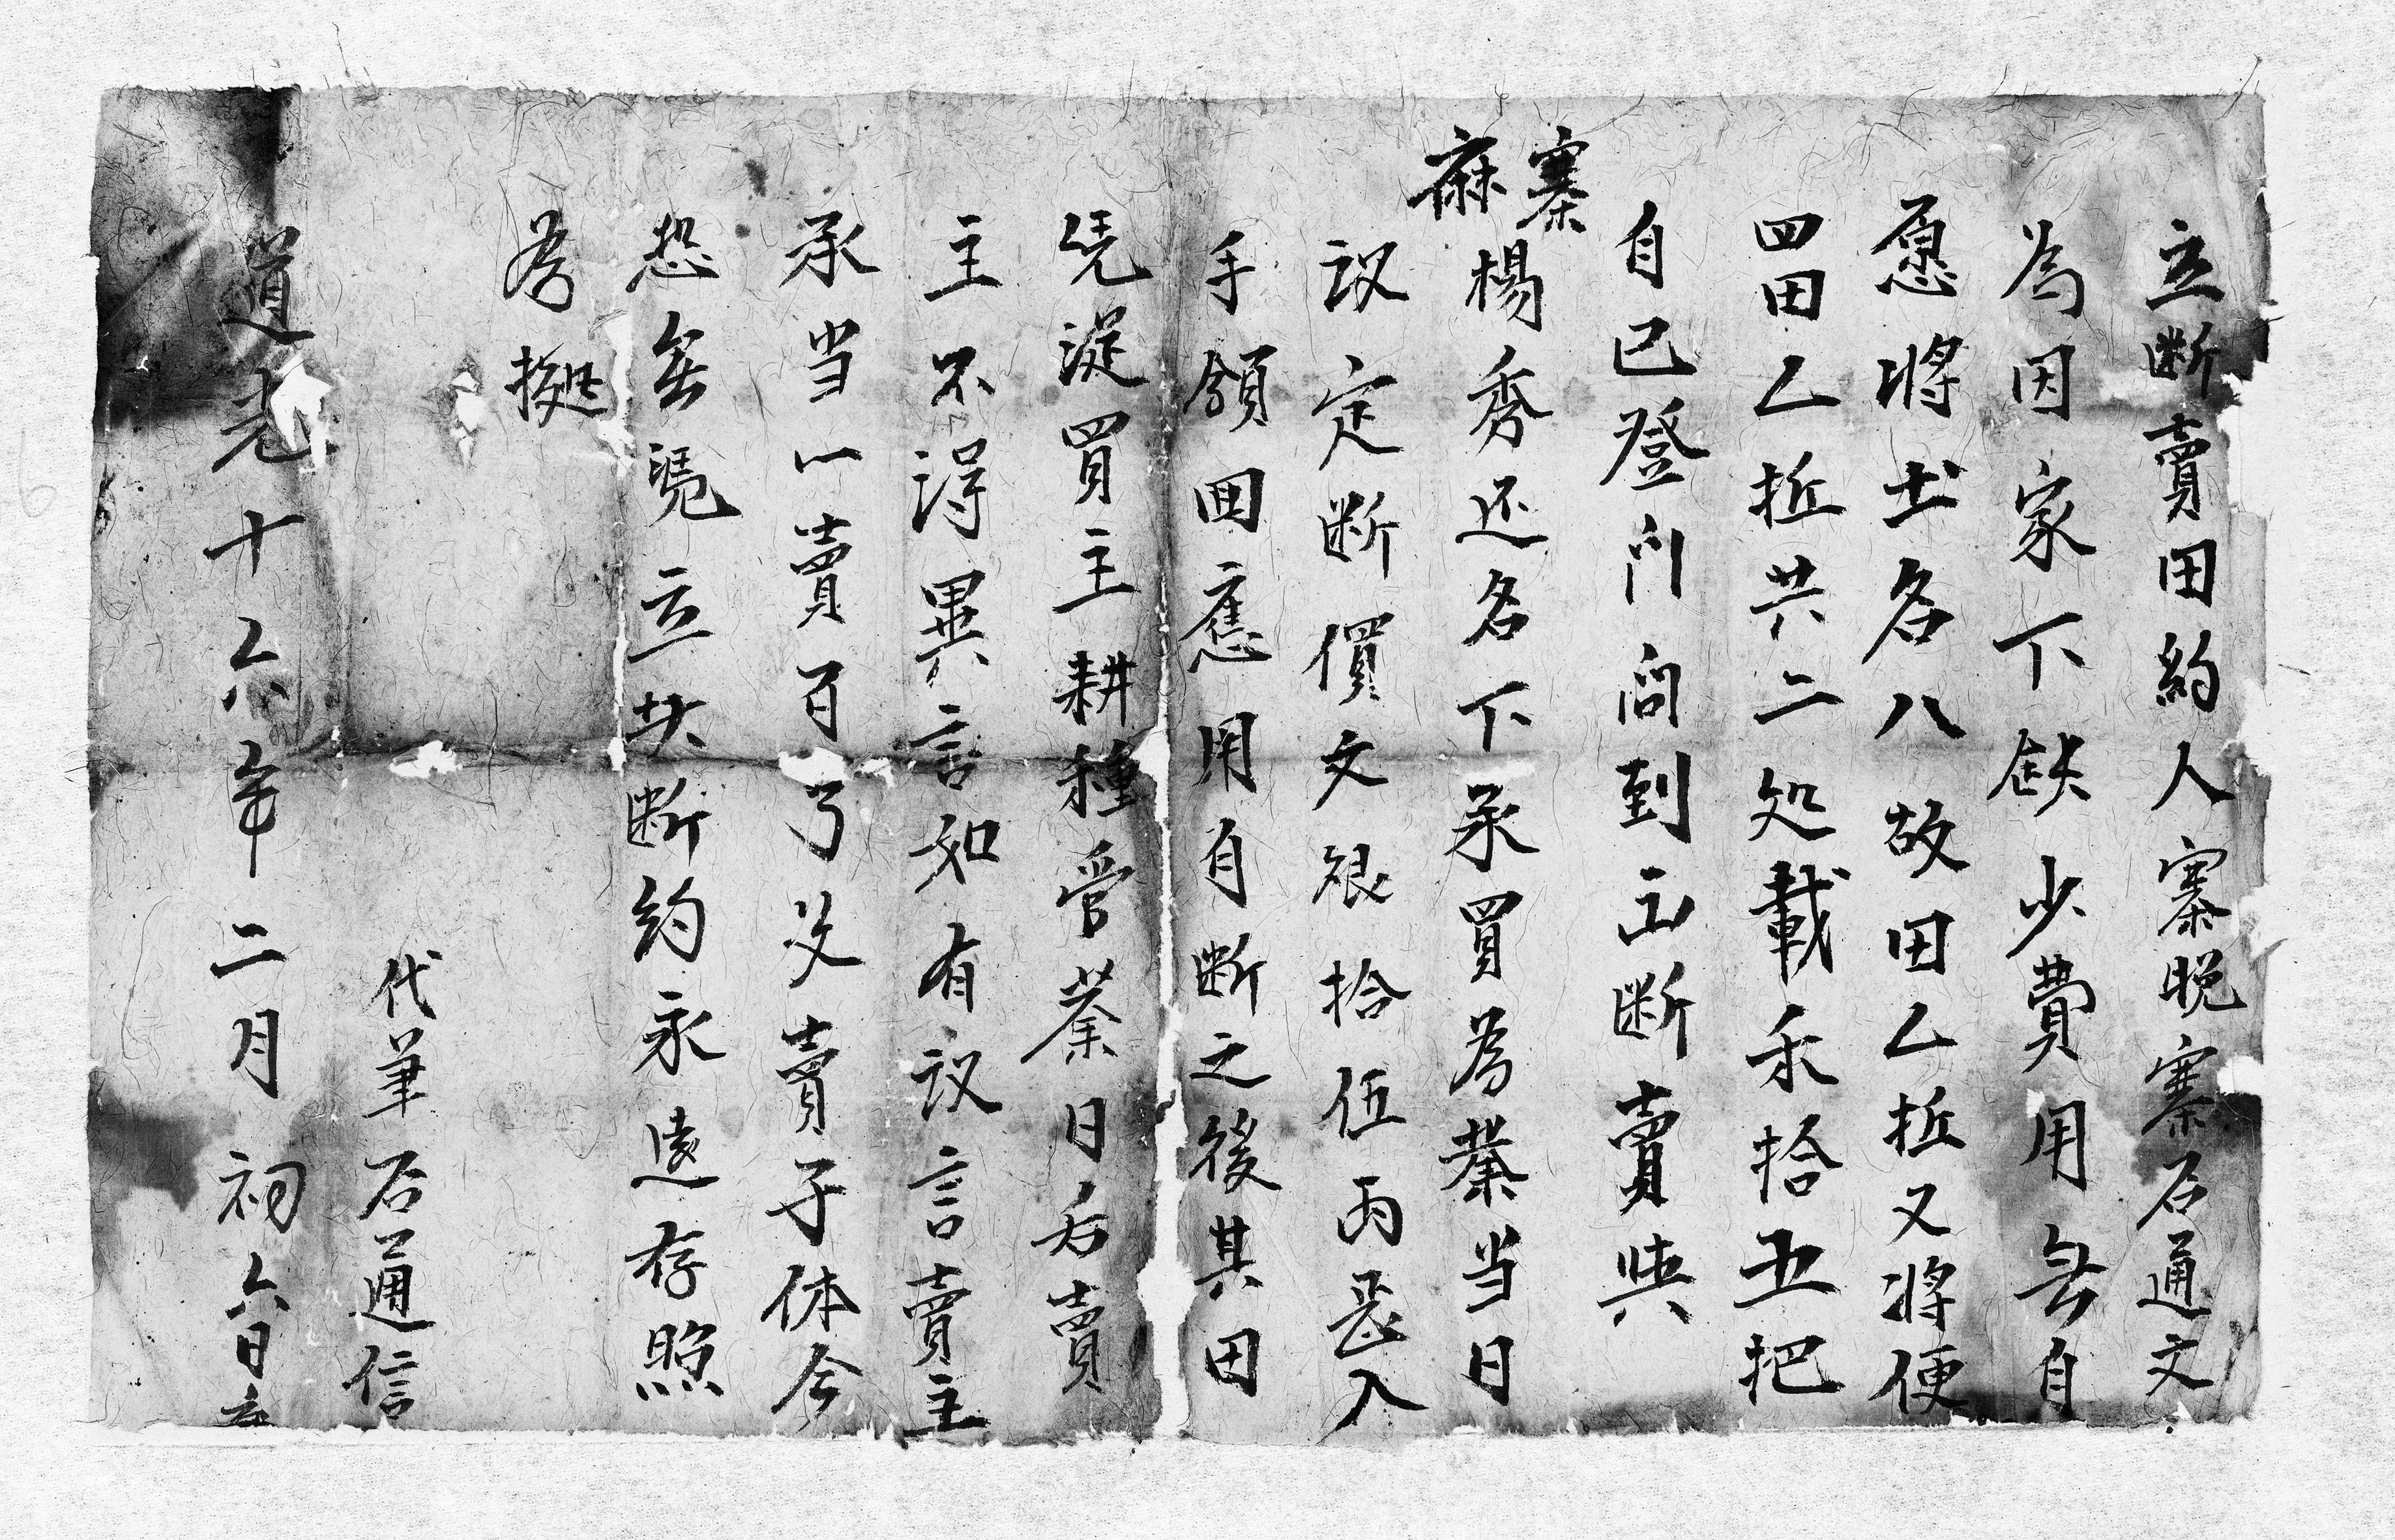 立断賣田約人寨晚寨石通文
為因家下缺少費用無自
愿將土名八故田乙坵又將便
四田乙坵共二処載禾拾五把
自己登门问到立断賣與
麻寨
楊秀还名下承買為業当日
议定断價文銀拾伍両正入
手領回應用自断之後其田
凭從買主耕種管業日后賣
主不淂異言如有议言賣主
承当一賣百了父賣子休今
恐無凴立共断約永遠存照
為拠
代筆石通信
道光十六年二月初六日立